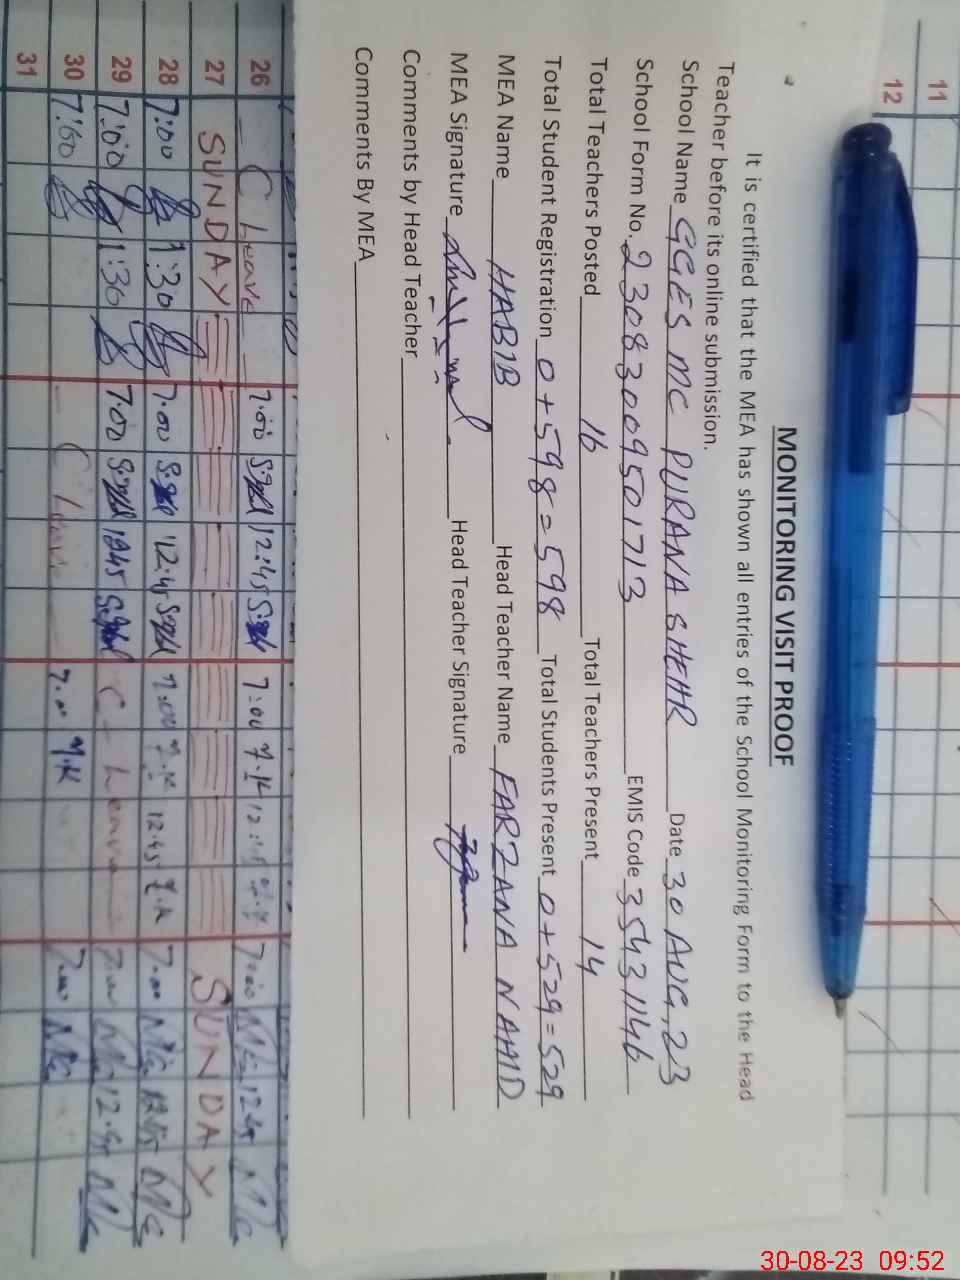 11
12
MONITORING VISIT PROOF
It is certified that the MEA has shown all entries of the School Monitoring Form to the Head
Teacher before its online submission.
School Name GGES MC PURANA SHEHR Date 30 AUG, 23
School Form No. 23083009501713 EMIS Code 35431146
Total Teachers Posted 16 Total Teachers Present 14
Total Student Registration 0+598=598 Total Students Present 0+529=529
MEA Name HABIB Head Teacher Name FARZANA NAHID
MEA Signature Head Teacher Signature
Comments by Head Teacher
Comments By MEA
26 C Leave 7:00 12:45 7:00 12:45 7:00 12:45
27 SUNDAY SUNDAY
28 7:00 1:30 7:00 12:45 7:00 12:45 7:00 12:45
29 7:00 1:30 7:00 1245 C-Leave 7:00 12:45
30 7:00 C Leave 7:00 7:00
31
30-08-23 09:52